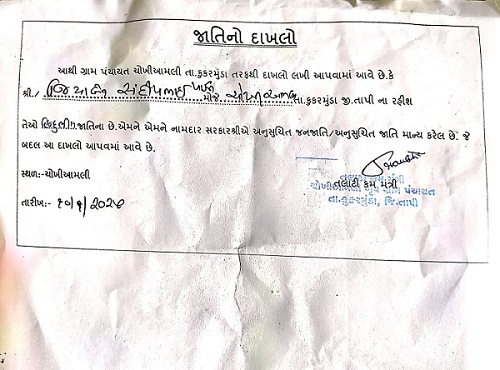 જાતિનો દાખલો
આથી ગ્રામ પંચાયત ચોખીઆમલી તા.કુકરમુંડા તરફથી દાખલો લખી આપવામાં આવે છે.કે
શ્રી./ સંદીપભાઈ મોજે ચોખીઆમલી તા.કુકરમુંડા જી.તાપી ના રહીશ
તેઓ હિન્દુ જાતિના છે.એમને એમને નામદાર સરકારશ્રીએ અનુસુચિત જનજાતિ/અનુસુચિત જાતિ માન્ય કરેલ છે. જે
બદલ આ દાખલો આપવામાં આવે છે.
સ્થળ:-ચોખીઆમલી
તલાટી કમ મંત્રી
ગ્રામ પંચાયત
તા.કુકરમુંડા, જિ.તાપી
તારીખ:- ૧૦/૧/૨૦૨૪